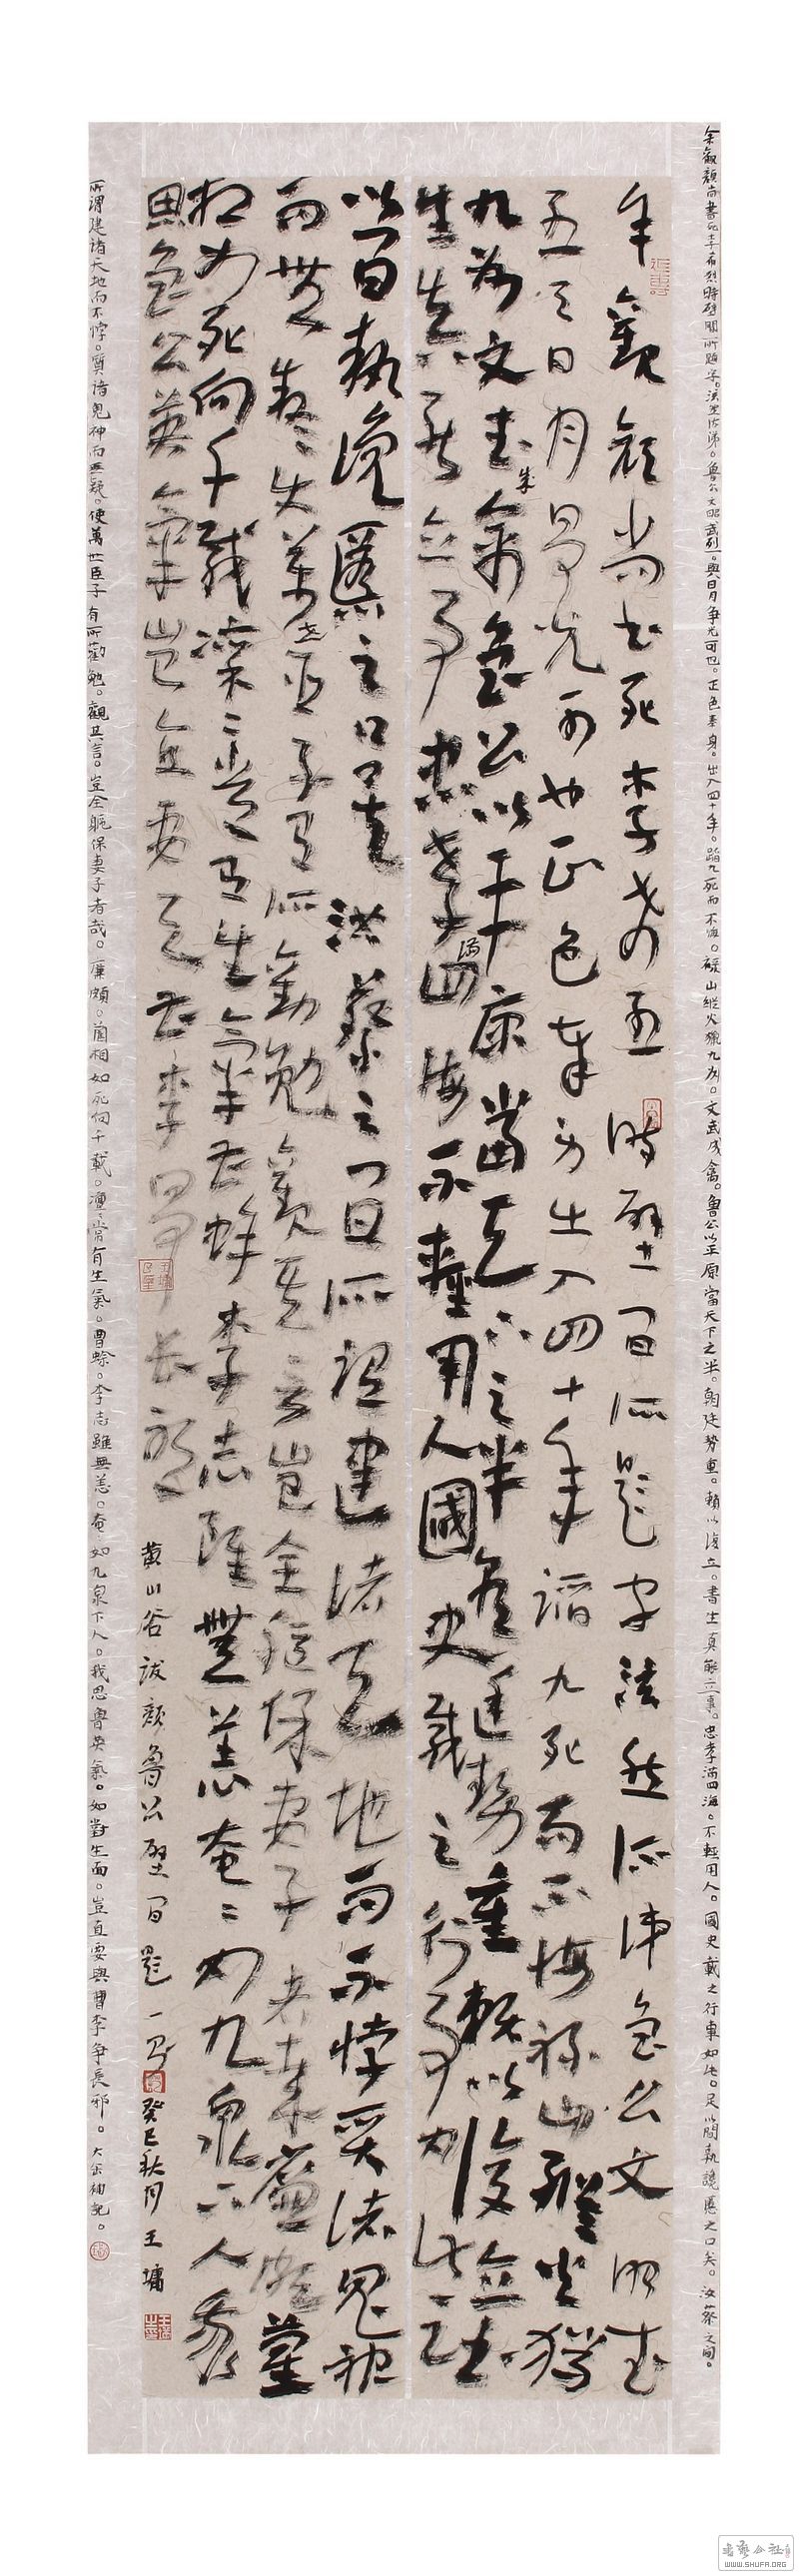 余觀顏尚書死李希烈時壁間所題字。泫然流涕。魯公文昭武烈。與日月爭光可也。正色奉身。出入四十年。蹈九死而不悔。祿山縱火獵九州。文武成禽。魯公以平原當天下之半。朝廷勢重。賴以復立。書生真能立事。忠孝滿四海。不輕用人。國史載之行事如此。足以間執讒慝之口矣。汝蔡之間。
余觀顏尚書死李希烈時壁間所題字泫然流涕魯公文昭武
烈與日月爭光可也正色奉身出入四十年蹈九死而不悔祿山縱火獵
九州文武成禽魯公以平原當天下之半朝廷勢重賴以復立書
生真能立事忠孝滿四海不輕用人國史載之行事如此足
以間執讒慝之口矣汝蔡之間所謂建諸天地而不悖質諸鬼神
而無疑使萬世臣子有所勸勉觀其言豈全軀保妻子者哉廉頗藺
相如死向千載凜凜常有生氣曹蜍李志雖無恙奄奄如九泉下人我
思魯公英氣豈直要與曹李爭長邪 黃山谷跋顏魯公壁間題一則 癸巳秋月王墉
所謂建諸天地而不悖。質諸鬼神而無疑。使萬世臣子有所勸勉。觀其言。豈全軀保妻子者哉。廉頗。藺相如死向千載。凜凜常有生氣。曹蜍。李志雖無恙。奄奄如九泉下人。我思魯英氣。如對生面。豈直要與曹李爭長邪。大缶補記。
書藝公社
WWW.SHUFA.ORG